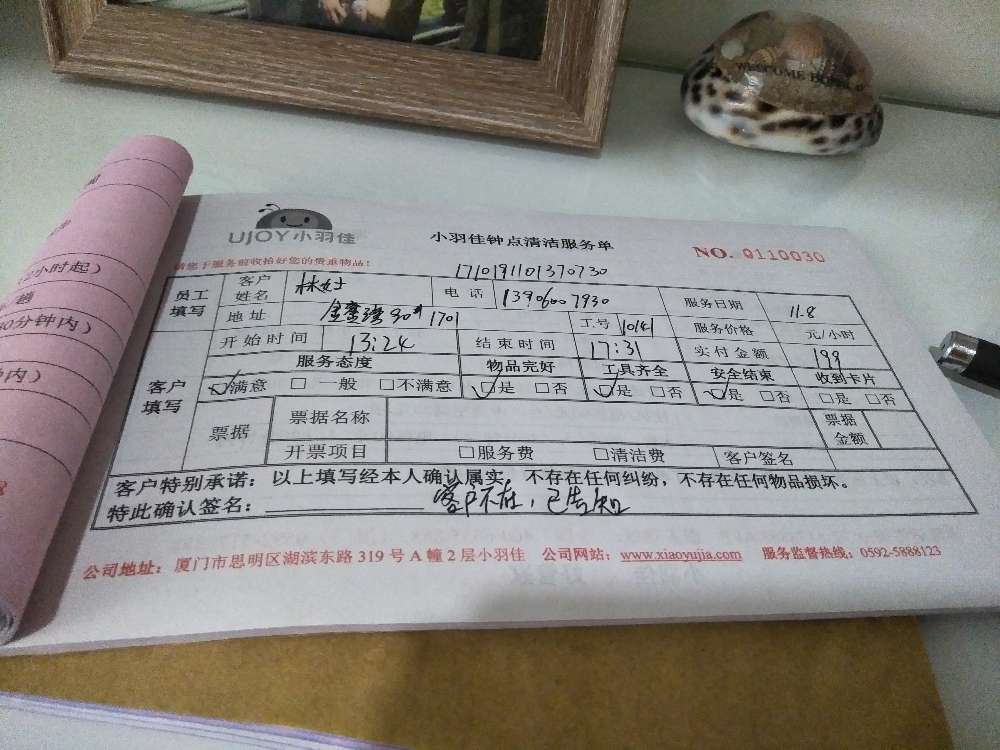 WELCOME
UJOY小羽佳
小羽佳钟点清洁服务单
NO. 0110030
请您于服务前收拾好您的贵重物品!
1710191101370730
员工填写 客户姓名 林 电话 13906007930 服务日期 11.8
地址 1701 工号 10141 服务价格 元/小时
开始时间 13:24 结束时间 17:31 实付金额 199
客户填写 服务态度 物品完好 工具齐全 安全结束 收到卡片
☑满意 □一般 □不满意 ☑是 □否 ☑是 □否 ☑是 □否 □是 □否
票据 票据名称 票据金额
开票项目 □服务费 □清洁费 客户签名
客户特别承诺:以上填写经本人确认属实,不存在任何纠纷,不存在任何物品损坏。
特此确认签名: 客户不在,已告知
公司地址:厦门市思明区湖滨东路 319 号 A 幢 2 层小羽佳 公司网站:www.xiaoyujia.com 服务监督热线:0592-5888123
小时起)
0分钟内)
内)